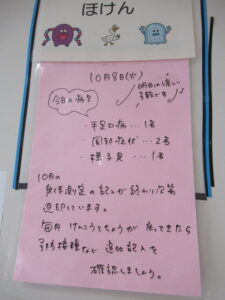 ほけん
10月8日(火)
今日の病欠
明日は涼しい
予報です
・手足口病…1名
・風邪症状…2名
・様子見…1名
10月の
身体測定の記入が終わり次第
返却しています。
毎月けんこうてちょうが戻ってきたら
予防接種など追加記入を
確認しましょう。